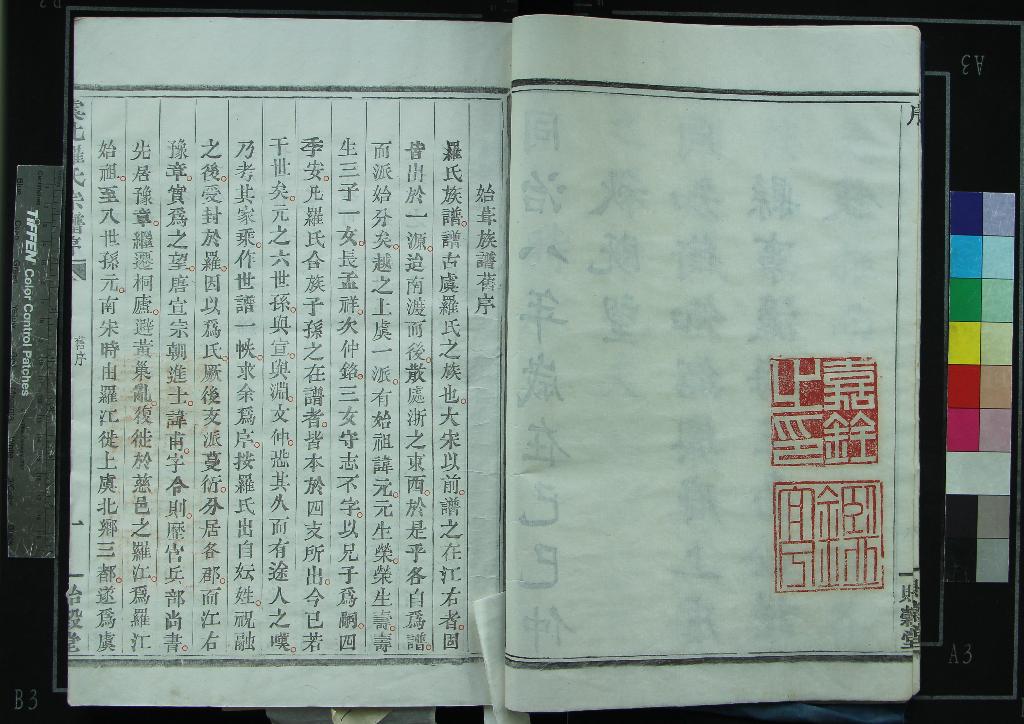 序
嘉銓之印
貽穀堂
始葺族譜舊序
羅氏族譜譜古虞羅氏之族也大宋以前譜之在江右者固
皆出於一源迨南渡而後散處浙之東西於是乎各自爲譜
而派始分矣越之上虞一派有始祖諱元元生榮榮生壽壽
生三子一女長孟祥次仲銘三女守志不字以兄子爲嗣四
季安凡羅氏合族子孫之在譜者皆本於四支所出今已若
干世矣元之六世孫與宣與淵文仲恐其久而有途人之嘆
乃考其家乘作世譜一帙求余爲序按羅氏出自妘姓祝融
之後受封於羅因以爲氏厥後支派蔓衍分居各郡而江右
豫章實爲之望唐宣宗朝進士諱甫字令則歷官兵部尚書
先居豫章繼遷桐廬避黃巢亂復徙於慈邑之羅江爲羅江
始祖至八世孫元南宋時由羅江徙上虞北鄉三都遂爲虞
虞北羅氏宗譜序
舊序
一
貽穀堂
TIFFEN Color Control Patches
A3
A3
B3